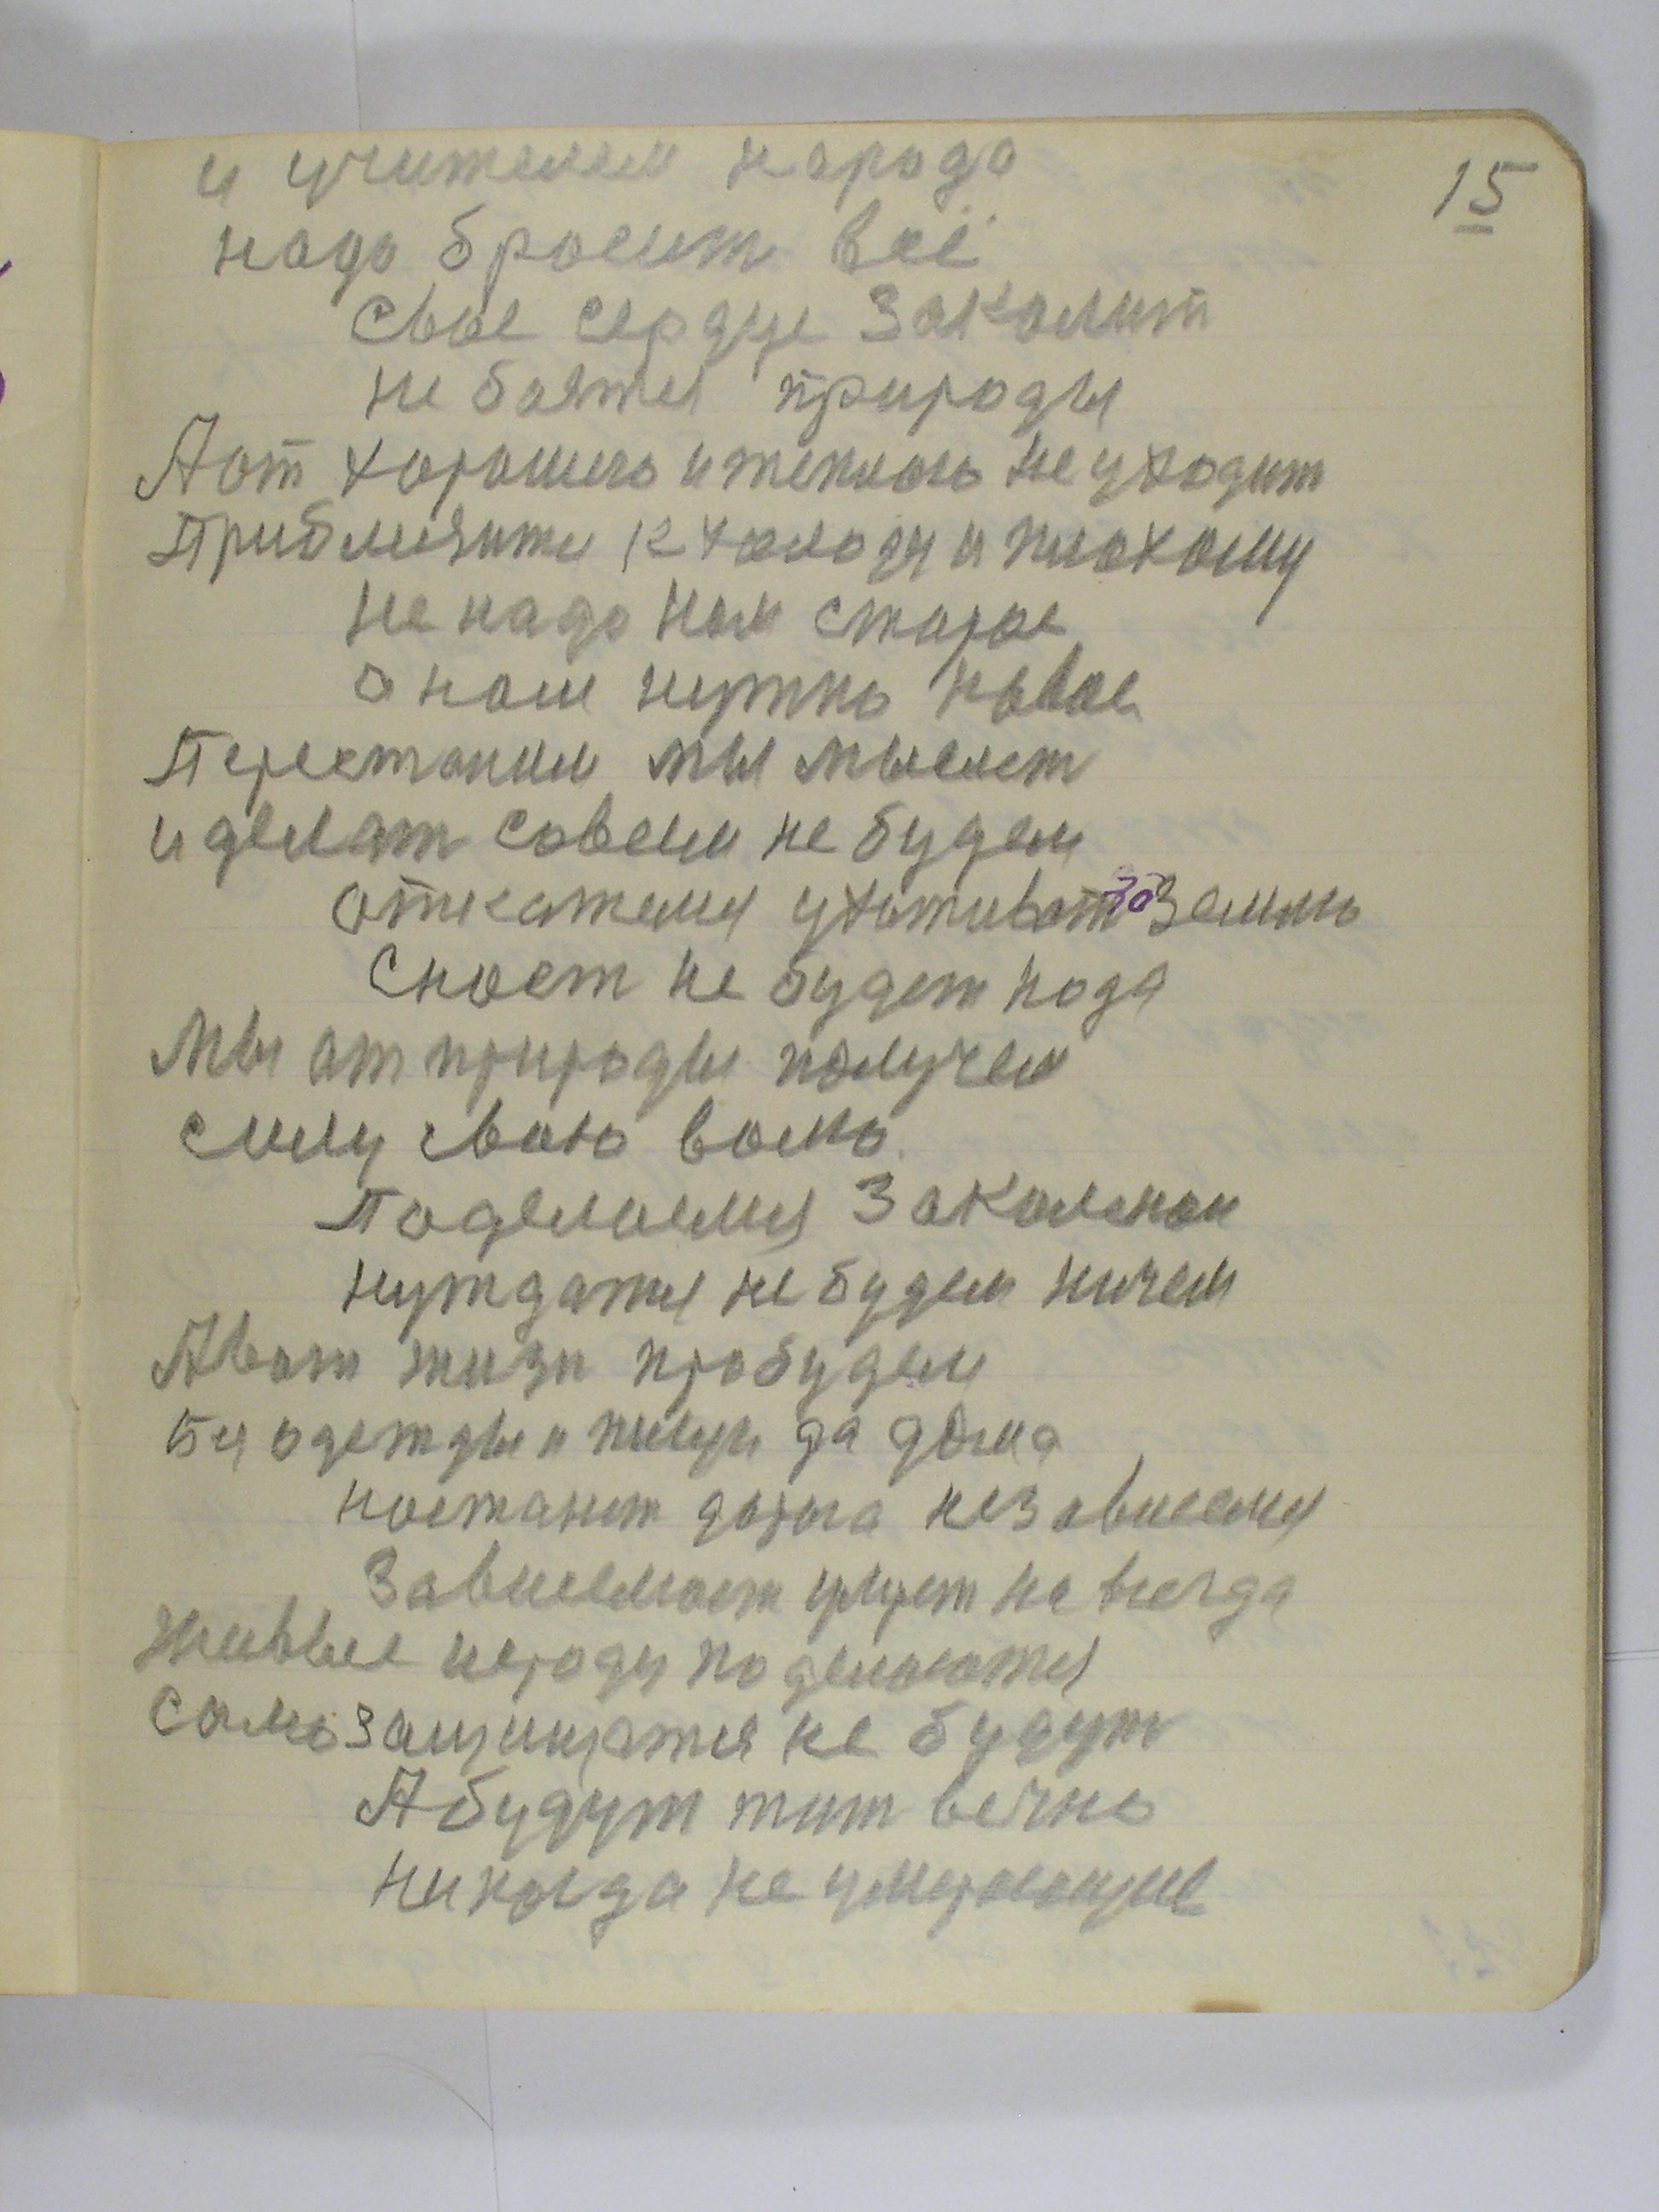 15
и учителем народа
надо бросит всё
свое сердце закалит
не боятся природы
А от хорошего и теплого не уходит
Приближится к холоду и плохому
не надо нам старое
а нам нужно новое
Перестаним мы мыслет
и делат совсем не будем
откажемся ухаживат за землею
сност не будет нода
Мы от природы получем
силу свою волю
Поделаемся закаленои
нуждатся не будем ничем
А вот жизн пробудем
Без одежды и пищи да дома
настанет дорога независемая
Зависемост умрет на всегда
Живые народы поделаются
самозащищатся не будут
А будут жит вечно
никогда не умирающие